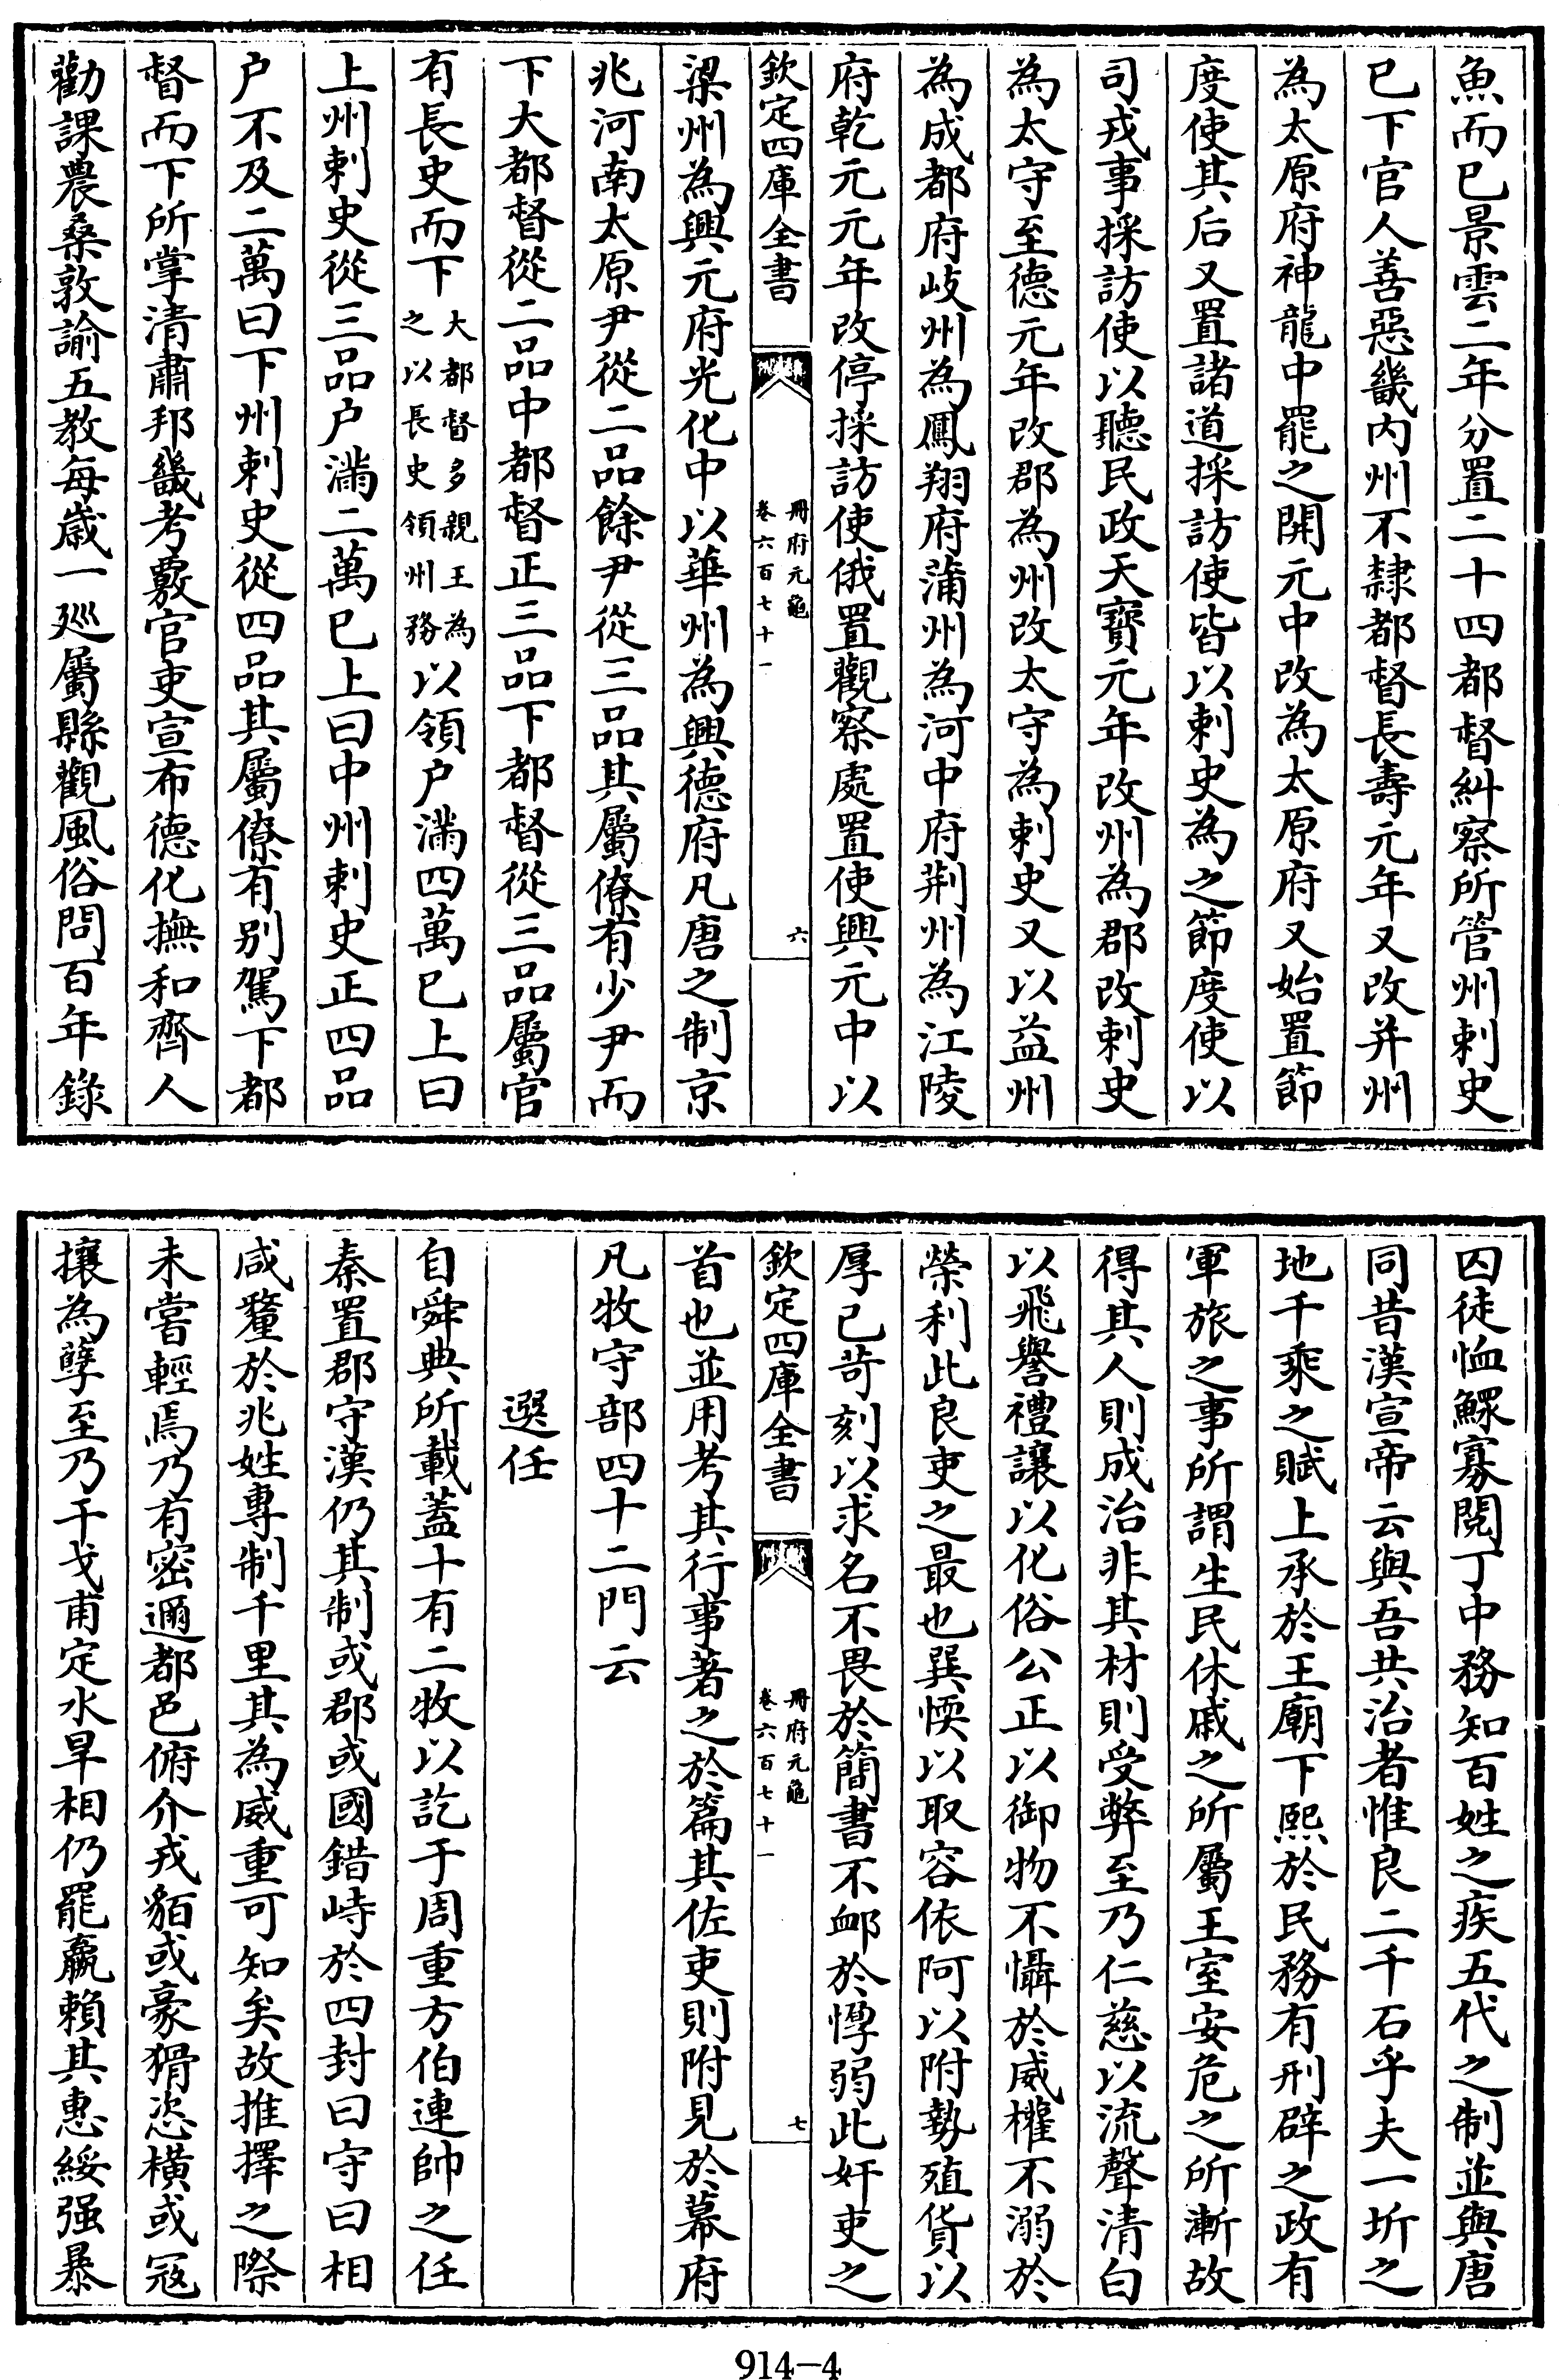 魚而已景雲二年分置二十四都督糾察所管州刺史
已下官人善惡畿内州不隸都督長壽元年又改并州
為太原府神龍中罷之開元中改為太原府又始置節
度使其后又置諸道採訪使皆以刺史為之節度使以
司戎事採訪使以聽民政天寶元年改州為郡改刺史
為太守至德元年改郡為州改太守為刺史又以益州
為成都府岐州為鳳翔府蒲州為河中府荆州為江陵
府乾元元年改停採訪使俄置觀察處置使興元中以
欽定四庫全書
冊府元龜
卷六百七十一
六
梁州為興元府光化中以華州為興德府凡唐之制京
兆河南太原尹從二品餘尹從三品其屬僚有少尹而
下大都督從二品中都督正三品下都督從三品屬官
有長史而下大都督多親王為之以長史領州務以領户滿四萬已上曰
上州刺史從三品户滿二萬已上曰中州刺史正四品
户不及二萬曰下州刺史從四品其屬僚有别駕下都
督而下所掌清肅邦畿考覈官吏宣布德化撫和齊人
勸課農桑敦諭五教每歲一廵屬縣觀風俗問百年錄
囚徒恤鰥寡閱丁中務知百姓之疾五代之制並與唐
同昔漢宣帝云與吾共治者惟良二千石乎夫一圻之
地千乘之賦上承於王廟下熙於民務有刑辟之政有
軍旅之事所謂生民休戚之所屬王室安危之所漸故
得其人則成治非其材則受弊至乃仁慈以流聲清白
以飛譽禮讓以化俗公正以御物不懾於威權不溺於
榮利此良吏之最也巽愞以取容依阿以附勢殖貨以
厚己苛刻以求名不畏於簡書不衈於惸弱此奸吏之
欽定四庫全書
冊府元龜
卷六百七十一
七
首也並用考其行事著之於篇其佐吏則附見於幕府
凡牧守部四十二門云
選任
自舜典所載蓋十有二牧以訖于周重方伯連帥之任
秦置郡守漢仍其制或郡或國錯峙於四封曰守曰相
咸釐於兆姓專制千里其為威重可知矣故推擇之際
未嘗輕焉乃有密邇都邑俯介戎貊或豪猾恣橫或寇
攘為孽至乃干戈甫定水旱相仍罷羸賴其惠綏强暴
914-4